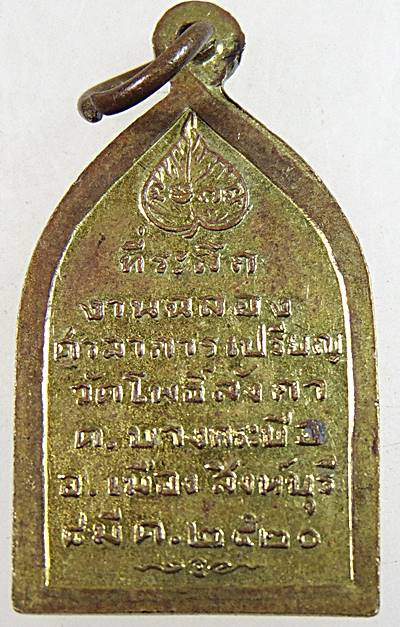 ที่ระลึก
งานฉลอง
ศาลาการเปรียญ
วัดโพธิ์ลังกา
ต.บางกระบือ
อ.เมือง สิงห์บุรี
๘ มี ค.๒๕๒๐